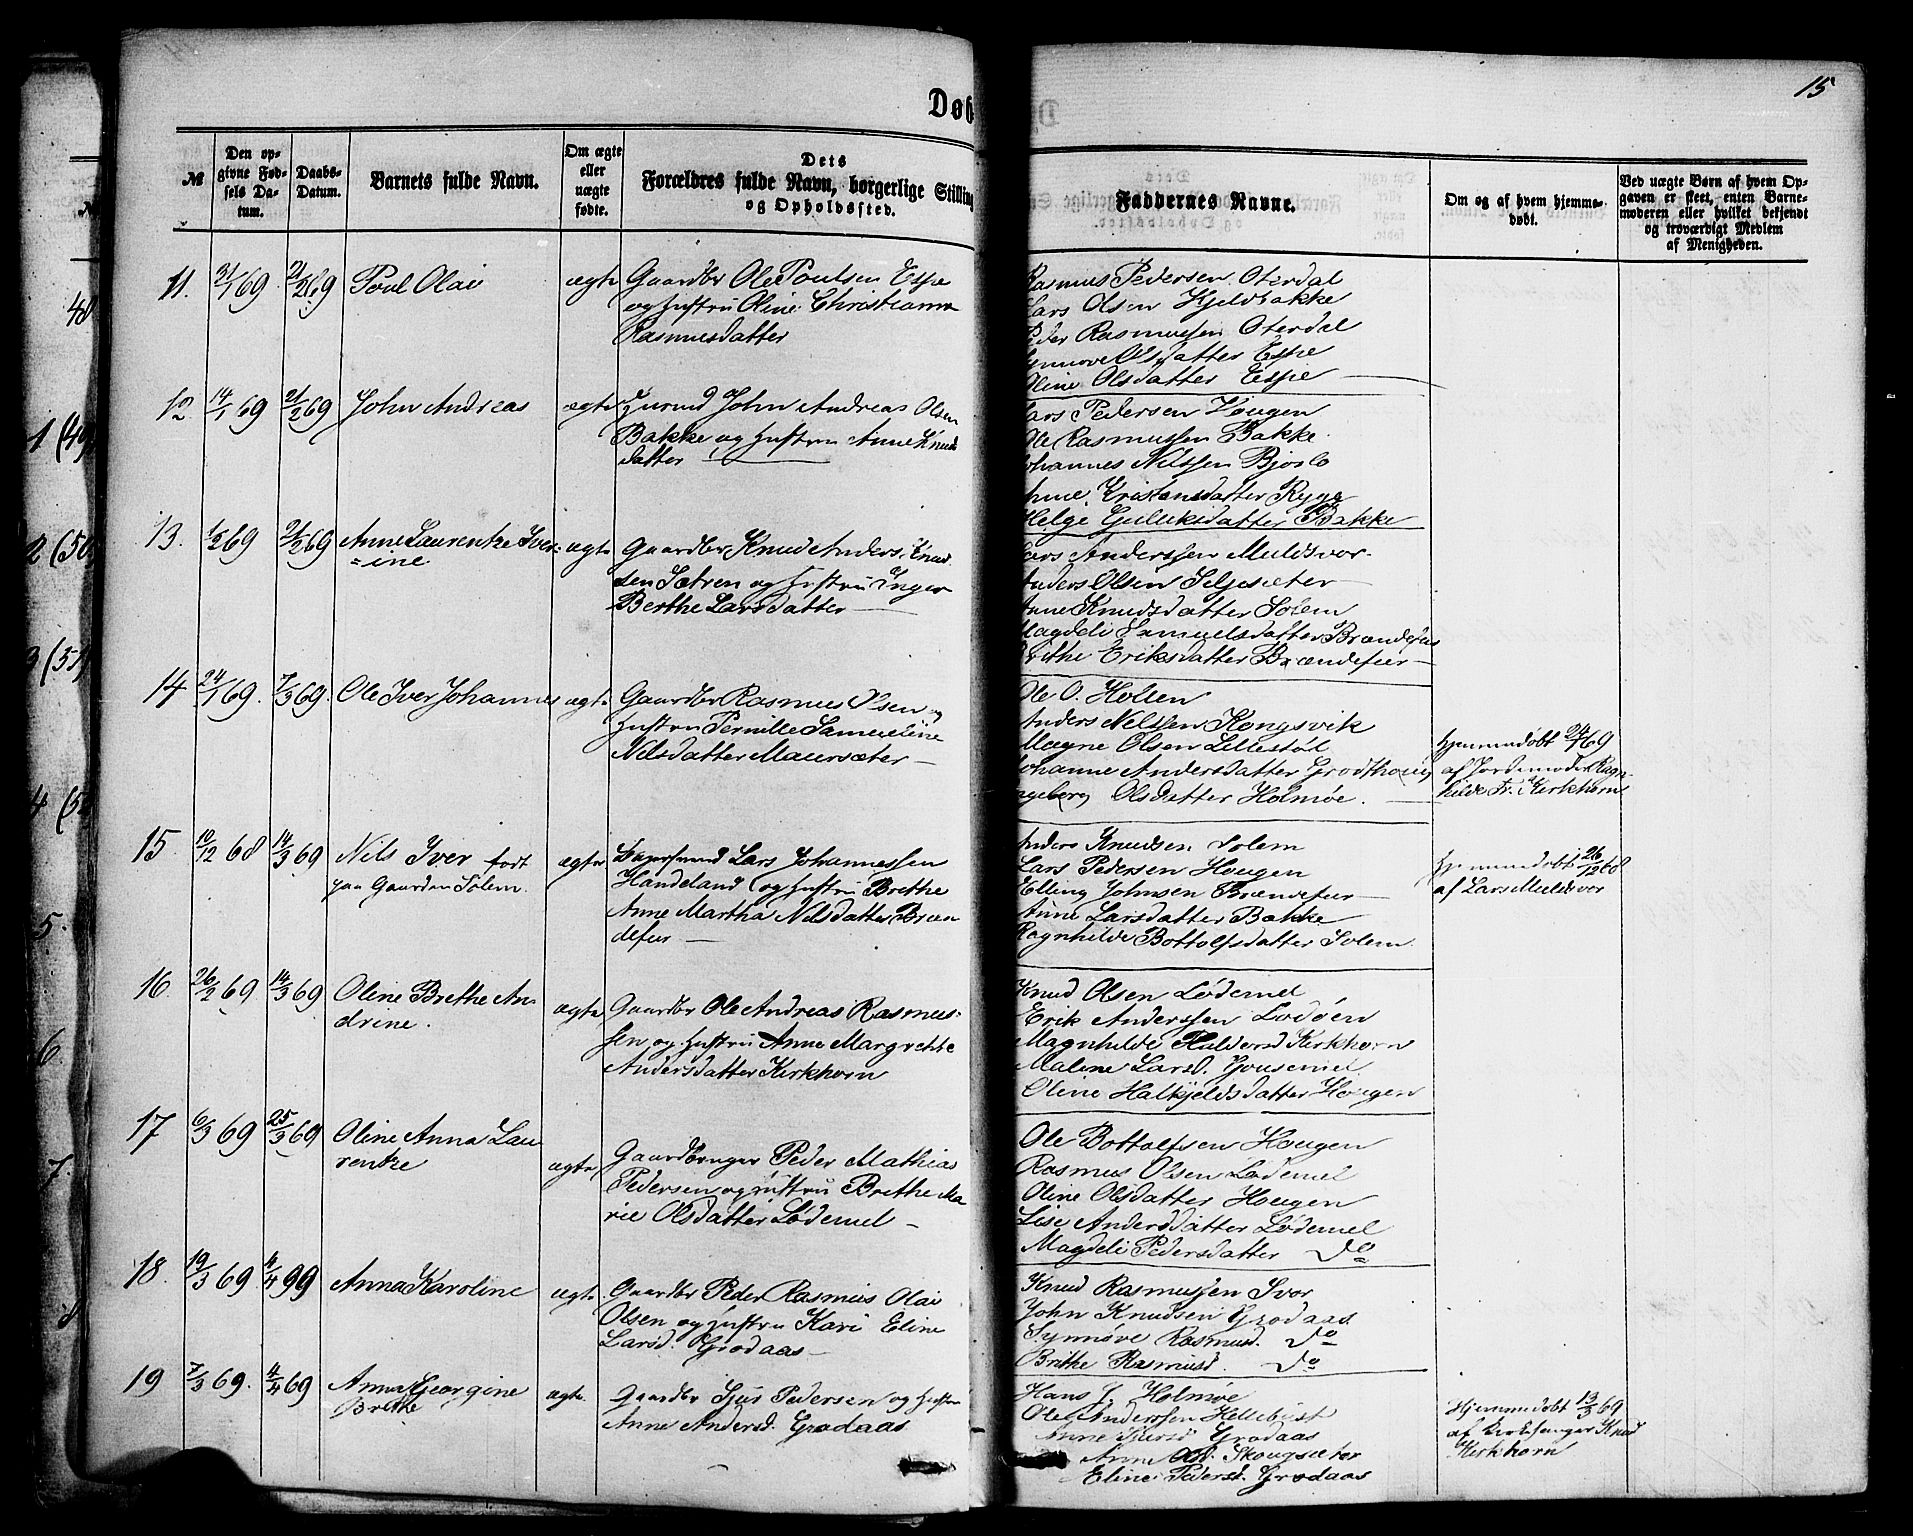 15
Døb
№
Den op-
givne Fød-
sels Da-
tum.
Daabs-
Datum.
Barnets fulde Navn.
Om ægte
eller
uægte
fødte.
Dets
Forældres fulde Navn, borgerlige Stilling
og Opholdssted.
Faddernes Navne.
Om og af hvem hjemme-
døbt.
Ved uægte Børn af hvem Op-
gaven er skeet, enten Barne-
moderen eller hvilket bekjendt
og troværdigt Medlem
af Menigheden.
11. 31/1 69 21/2 69 Poul Olai ægte Gaardbr Ole Poulsen Espe
og Hustru Oline Christianna
Rasmusdatter
Rasmus Pedersen Oterdal
Lars Olsen Kjeldbakke
Peder Rasmussen Oterdal
Synnove Olsdatter Espe
Oline Olsdatter Espe
12 14/1 69 21/2 69 John Andreas ægte John Andreas Olsen
Bakke og Hustru Anne Knuds
datter
Lars Pedersen Hougen
Ole Rasmussen Bakke
Johannes Nilssen Bjørlo
Anne Kristensdatter Rygg
Helge Gulliksdatter Bakke
13. 1/2 69 21/2 69 Anne Laurentze Iver-
=ine ægte Gaardbr Knud Anders Knud
sen Sætren og Hustru Inger
Berthe Larsdatter
Lars Anderssen Muldsvor
Anders Olsen Seljesæter
Anne Knudsdatter Solem
Magdeli Samuelsdatter Brændefur
Brithe Eriksdatter Brændefur
14 24/1 69. 7/3 69. Ole Iver Johannes ægte Gaardbr Rasmus Olsen og
Hustru Pernille Samueline
Nilsdatter Maursæter
Ole O. Holten
Anders Nelssen Kongsvik
Magne Olsen Lillestøl
Johanne Andersdatter Grodthoug
Ingeborg Olsdatter Holmøe.
Hjemmedøbt 24/1 69
af Jordemoder Ragn-
hilde Kirkhorn
15 10/12 68 14/3 69 Nils Iver født
paa Gaarden Solem. ægte Lars Johannessen
Handeland og Hustru Brethe
Anne Martha Nilsdatter Bræn
defur
Anders Knudsen Solem
Lars Pedersen Hougen
Elling Johnsen Brændefur
Anne Larsdatter Bakke
Ragnhilde Bottolfsdatter Solem.
Hjemmedøbt 26/12 68
af Lars Muldsvor
16. 26/2 69 14/3 69 Oline Brethe An
drine. ægte Gaardbr Ole Andreas Rasmus-
sen og Hustru Anne Margrethe
Andersdatter Kirkhorn
Knud Olsen Lødemel
Erik Anderssen Lødøen
Magnhilde Kirkhorn
Malene Larsd.
Oline Halkjeldsdatter Hougen
17 6/3 69 25/3 69 Oline Anna Lau
rentze ægte Gaardbruger Peder Mathias
Pedersen og Hustru Brethe Ma
rie Olsdatter Lødemel
Ole Bottolfsen Hougen
Rasmus Olsen Lødemel
Oline Olsdatter Hougen
Lise Andersdatter Lødemel
Magdeli Pedersdatter do
18. 19/3 69. 4/4 99 Anna Karoline ægte. Gaardbr Peder Rasmus Olai
Olsen og Hustru Kari Eline
Larsd. Grodaas
Knud Rasmussen Svor
John Knudsen Grodaas
Synnøve Rasmusd. do
Brithe Rasmusd. do
19 7/3 69. 4/4 69 Anna Georgine
Brethe ægte. Gaardbr Sjur Pedersen og Hustru
Anne Andersd. Grodaas
Hans J. Holmøe
Ole Anderssen Hellebust
Anne Sjursd Grodaas
Anne Old. Skougsæter
Eline Pedersd. Grodaas
Hjemmedøbt 13/3 69
af Kirkesanger Knud
Kirkhorn